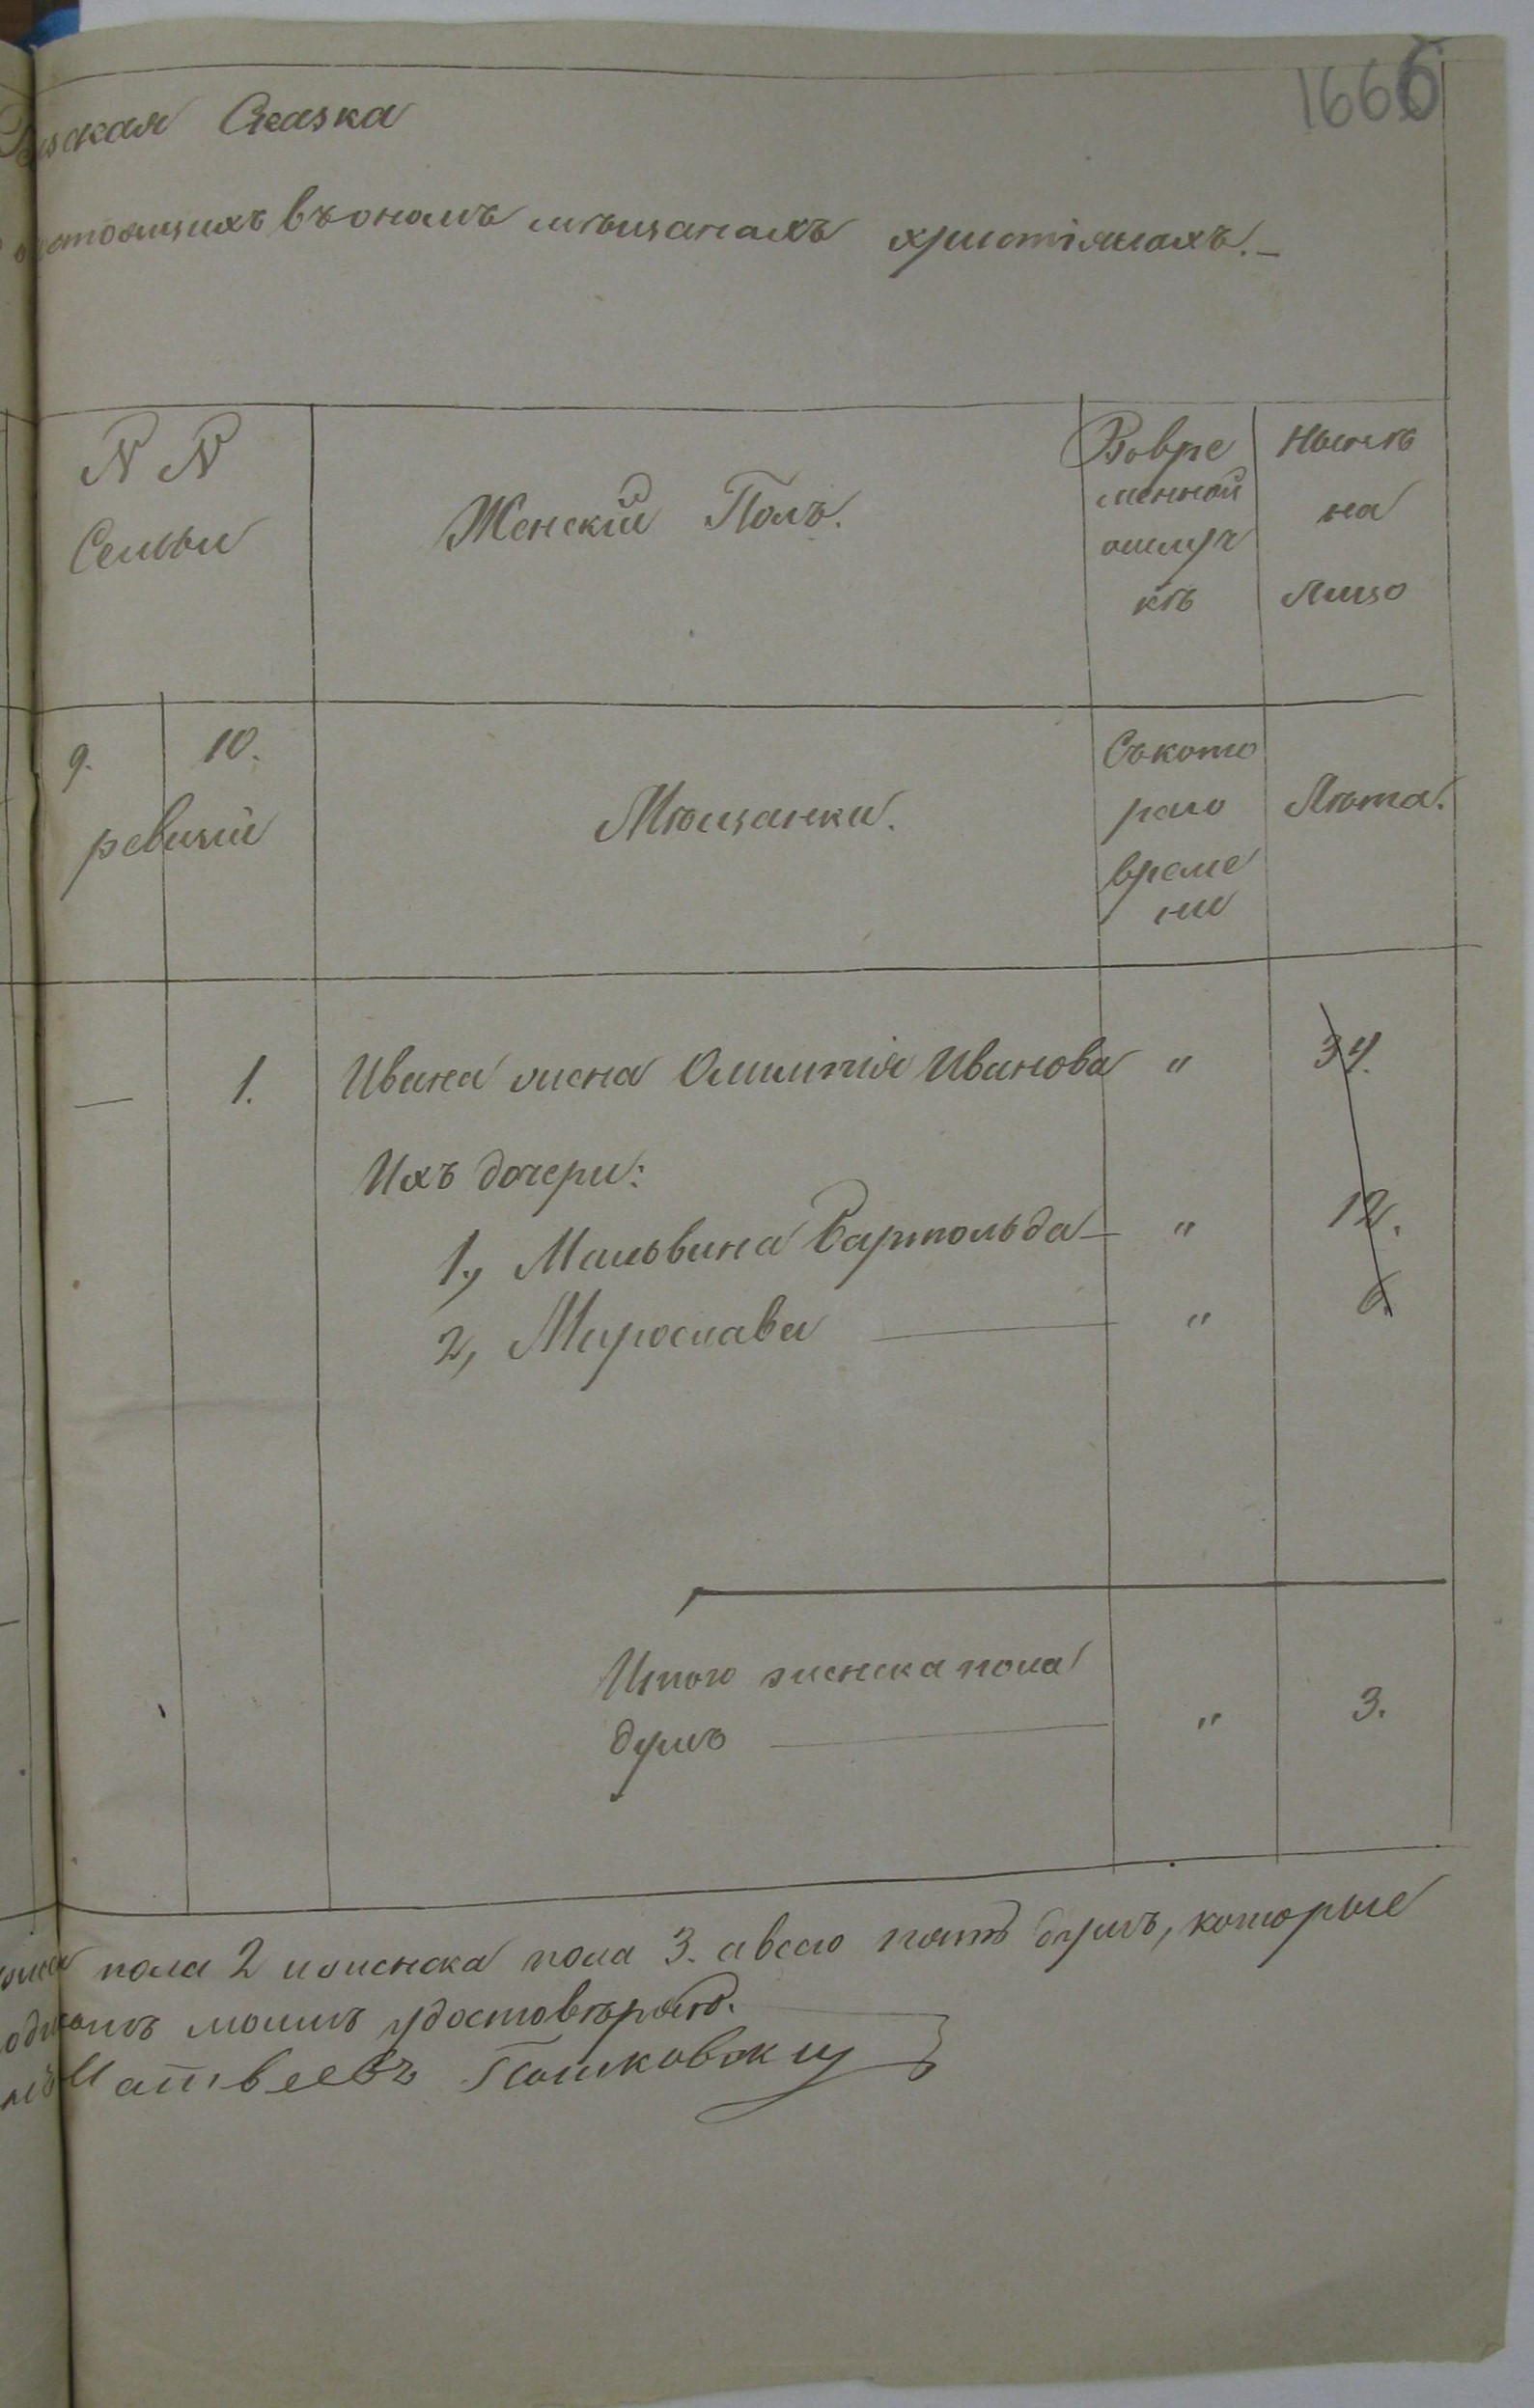 1666
Сказка
состоящихъ въ ономъ мѣщанахъ христіянахъ.
N N
Семьи
Женскій Полъ.
Вовре
менной
отлуч
кѣ
Нынѣ
на
лицо
9.
10.
ревизіи
Мѣщанки.
Съ кото
раго
време
ни
Лѣта.
— 1. Ивана жена Олимпія Иванова " 34.
Ихъ дочери:
1, Мальвина Вартольда — " 12.
2, Мирослава — " 6.
Итого женска пола
душъ — " 3.
пола 2 и женска пола 3. а всего пять душъ, которые
моимъ удостовѣряю.
Матвеевъ